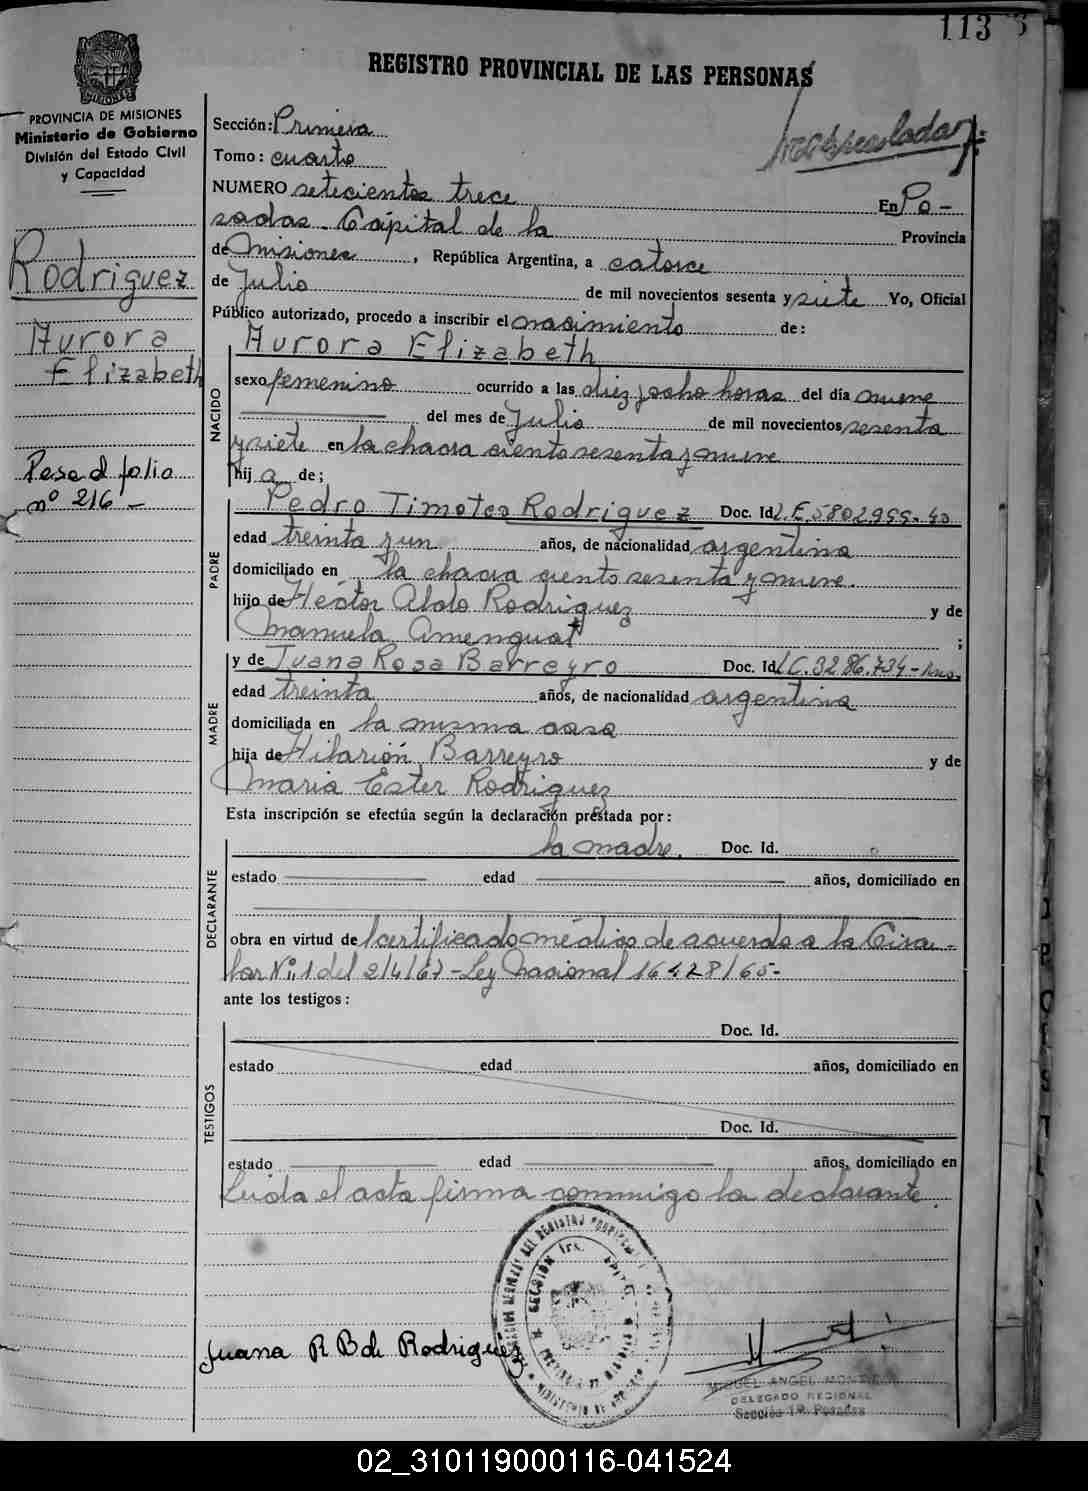 113
REGISTRO PROVINCIAL DE LAS PERSONAS
PROVINCIA DE MISIONES
Ministerio de Gobierno
División del Estado Civil
y Capacidad
Rodriguez
Aurora
Elizabeth
Pasa al folio
nº 216 -
Sección: Primera
Tomo: cuarto
NUMERO setecientos trece
En Po-
sadas - Capital de la Provincia
de Misiones, República Argentina, a catorce
de Julio de mil novecientos sesenta y siete Yo, Oficial
Público autorizado, procedo a inscribir el nacimiento de:
NACIDO
Aurora Elizabeth
sexo femenino ocurrido a las diez y ocho horas del día nueve
del mes de Julio de mil novecientos sesenta
y siete en la chacra ciento sesenta y nueve
hija de;
PADRE
Pedro Timoteo Rodriguez Doc. Id. L.E. 5802955
edad treinta y un años, de nacionalidad argentina
domiciliado en la chacra ciento sesenta y nueve.
hijo de Hector Aldo Rodriguez y de
Manuela Amengual ;
MADRE
y de Juana Rosa Barreyro Doc. Id. L.C. 3.286.734
edad treinta años, de nacionalidad argentina
domiciliada en la misma casa
hija de Hilarión Barreyro y de
Maria Ester Rodriguez
Esta inscripción se efectúa según la declaración prestada por:
DECLARANTE
la madre. Doc. Id.
estado edad años, domiciliado en
obra en virtud de certificado médico de acuerdo a la Circu-
lar Nº 1 del 2/4/67 - Ley Nacional 16428/65-
ante los testigos:
TESTIGOS
Doc. Id.
estado edad años, domiciliado en
Doc. Id.
estado edad años, domiciliado en
Leida el acta firma conmigo la declarante.
Juana R B de Rodriguez
MIGUEL ANGEL
DELEGADO REGIONAL
Sección 1ª Posadas
02_310119000116-041524